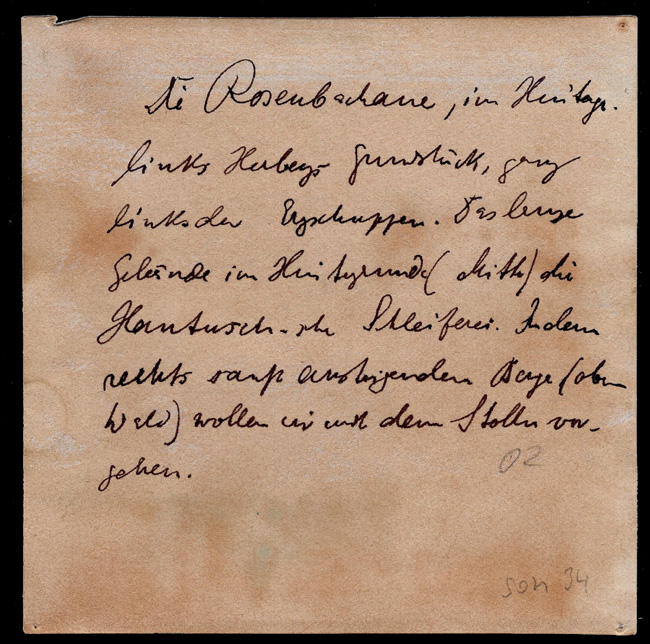 Die Rosenbachaue, im Hintergr.
links Herbergs Grundstück, ganz
links der Erzschuppen. Das lange
Gebäude im Hintergrunde (Mitte) die
Hantusch-sche Schleiferei. In dem
rechts sanft ansteigendem Berge (oben
Wald) wollen wir mit dem Stolln vor-
gehen.
02
34